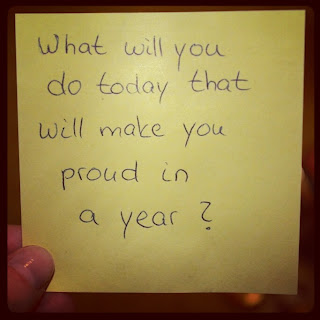 What will you
do today that
will make you
proud in
a year?